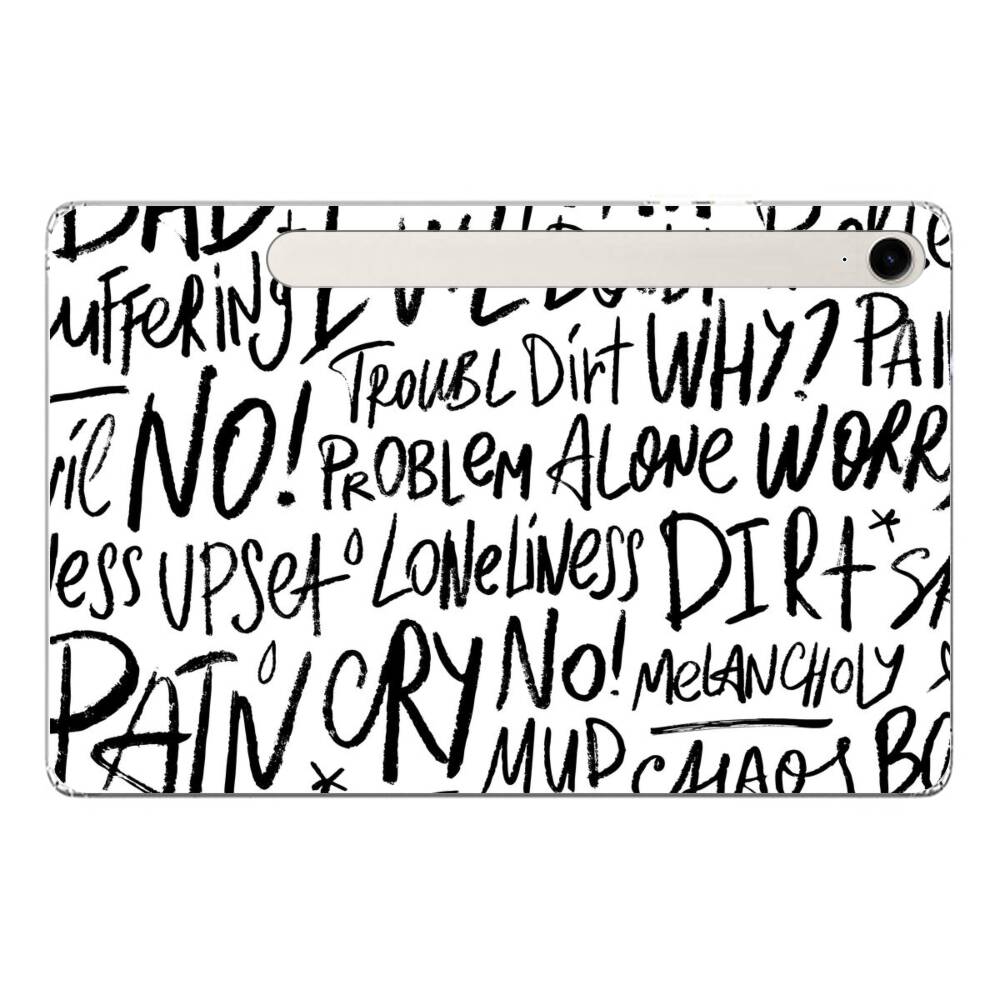 BAD
UFFERING EVIL DOUBT
TROUBL DIRT WHY? PAI
NO! PROBLEM ALONE WORR
ESS UPSET LONELINESS DIRT*
PAIN CRY NO! MELANCHOLY
* MUD CHAOS BO